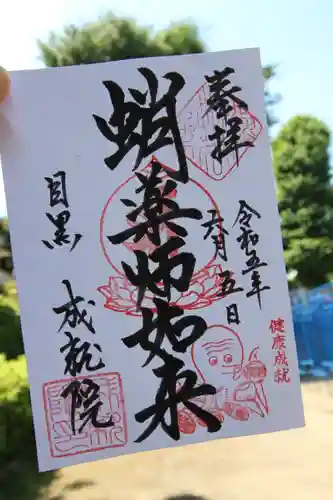 奉拝
令和五年
六月五日
健康成就
蛸薬師如来
目黒
成就院